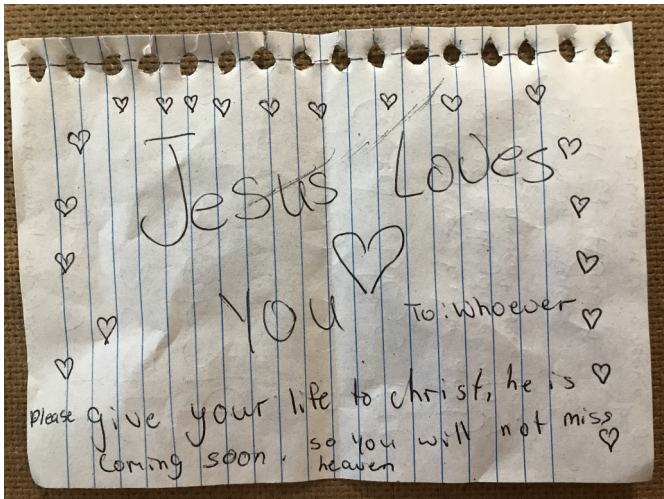 Jesus Loves
You
To: whoever
Please give your life to christ, he is
coming soon. so you will not miss
heaven